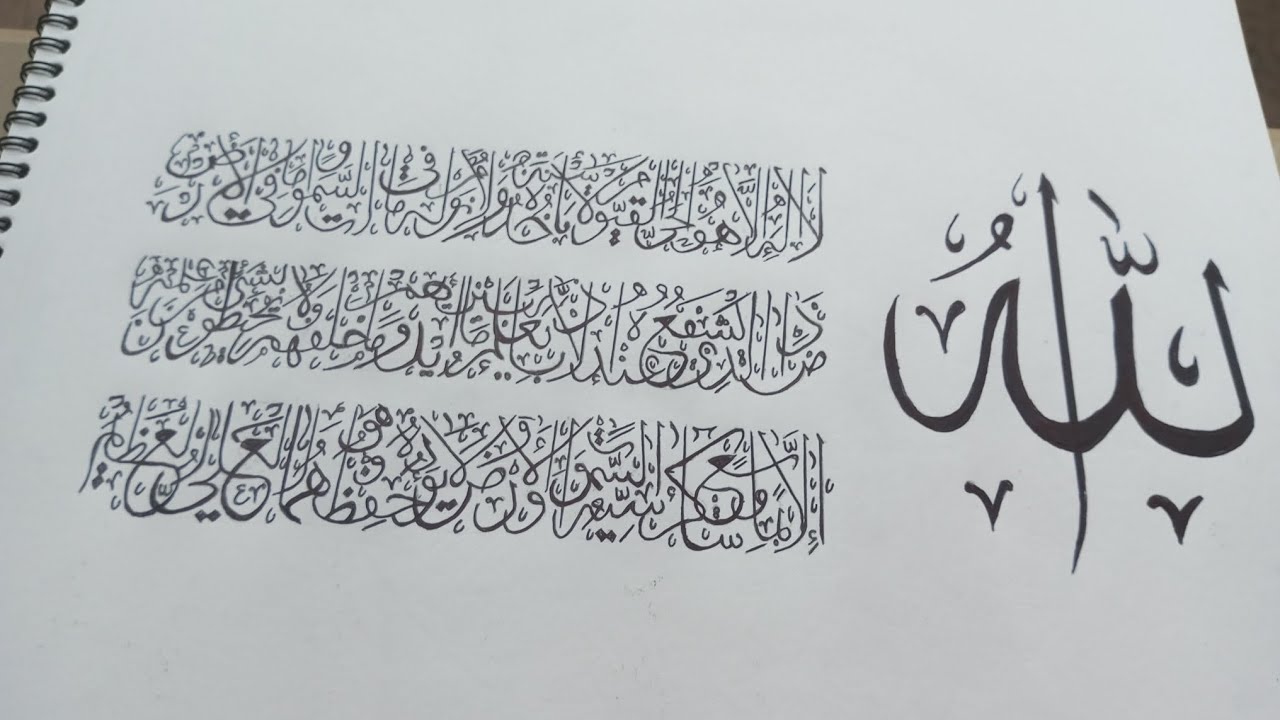 الله
لا اله الا هو الحي القيوم لا تأخذه سنة ولا نوم له ما في السموات وما في الارض من
ذا الذي يشفع عنده الا باذنه يعلم ما بين ايديهم وما خلفهم ولا يحيطون بشيء من علمه
إلا بما شاء وسع كرسيه السموات والأرض ولا يؤده حفظهما وهو العلي العظيم